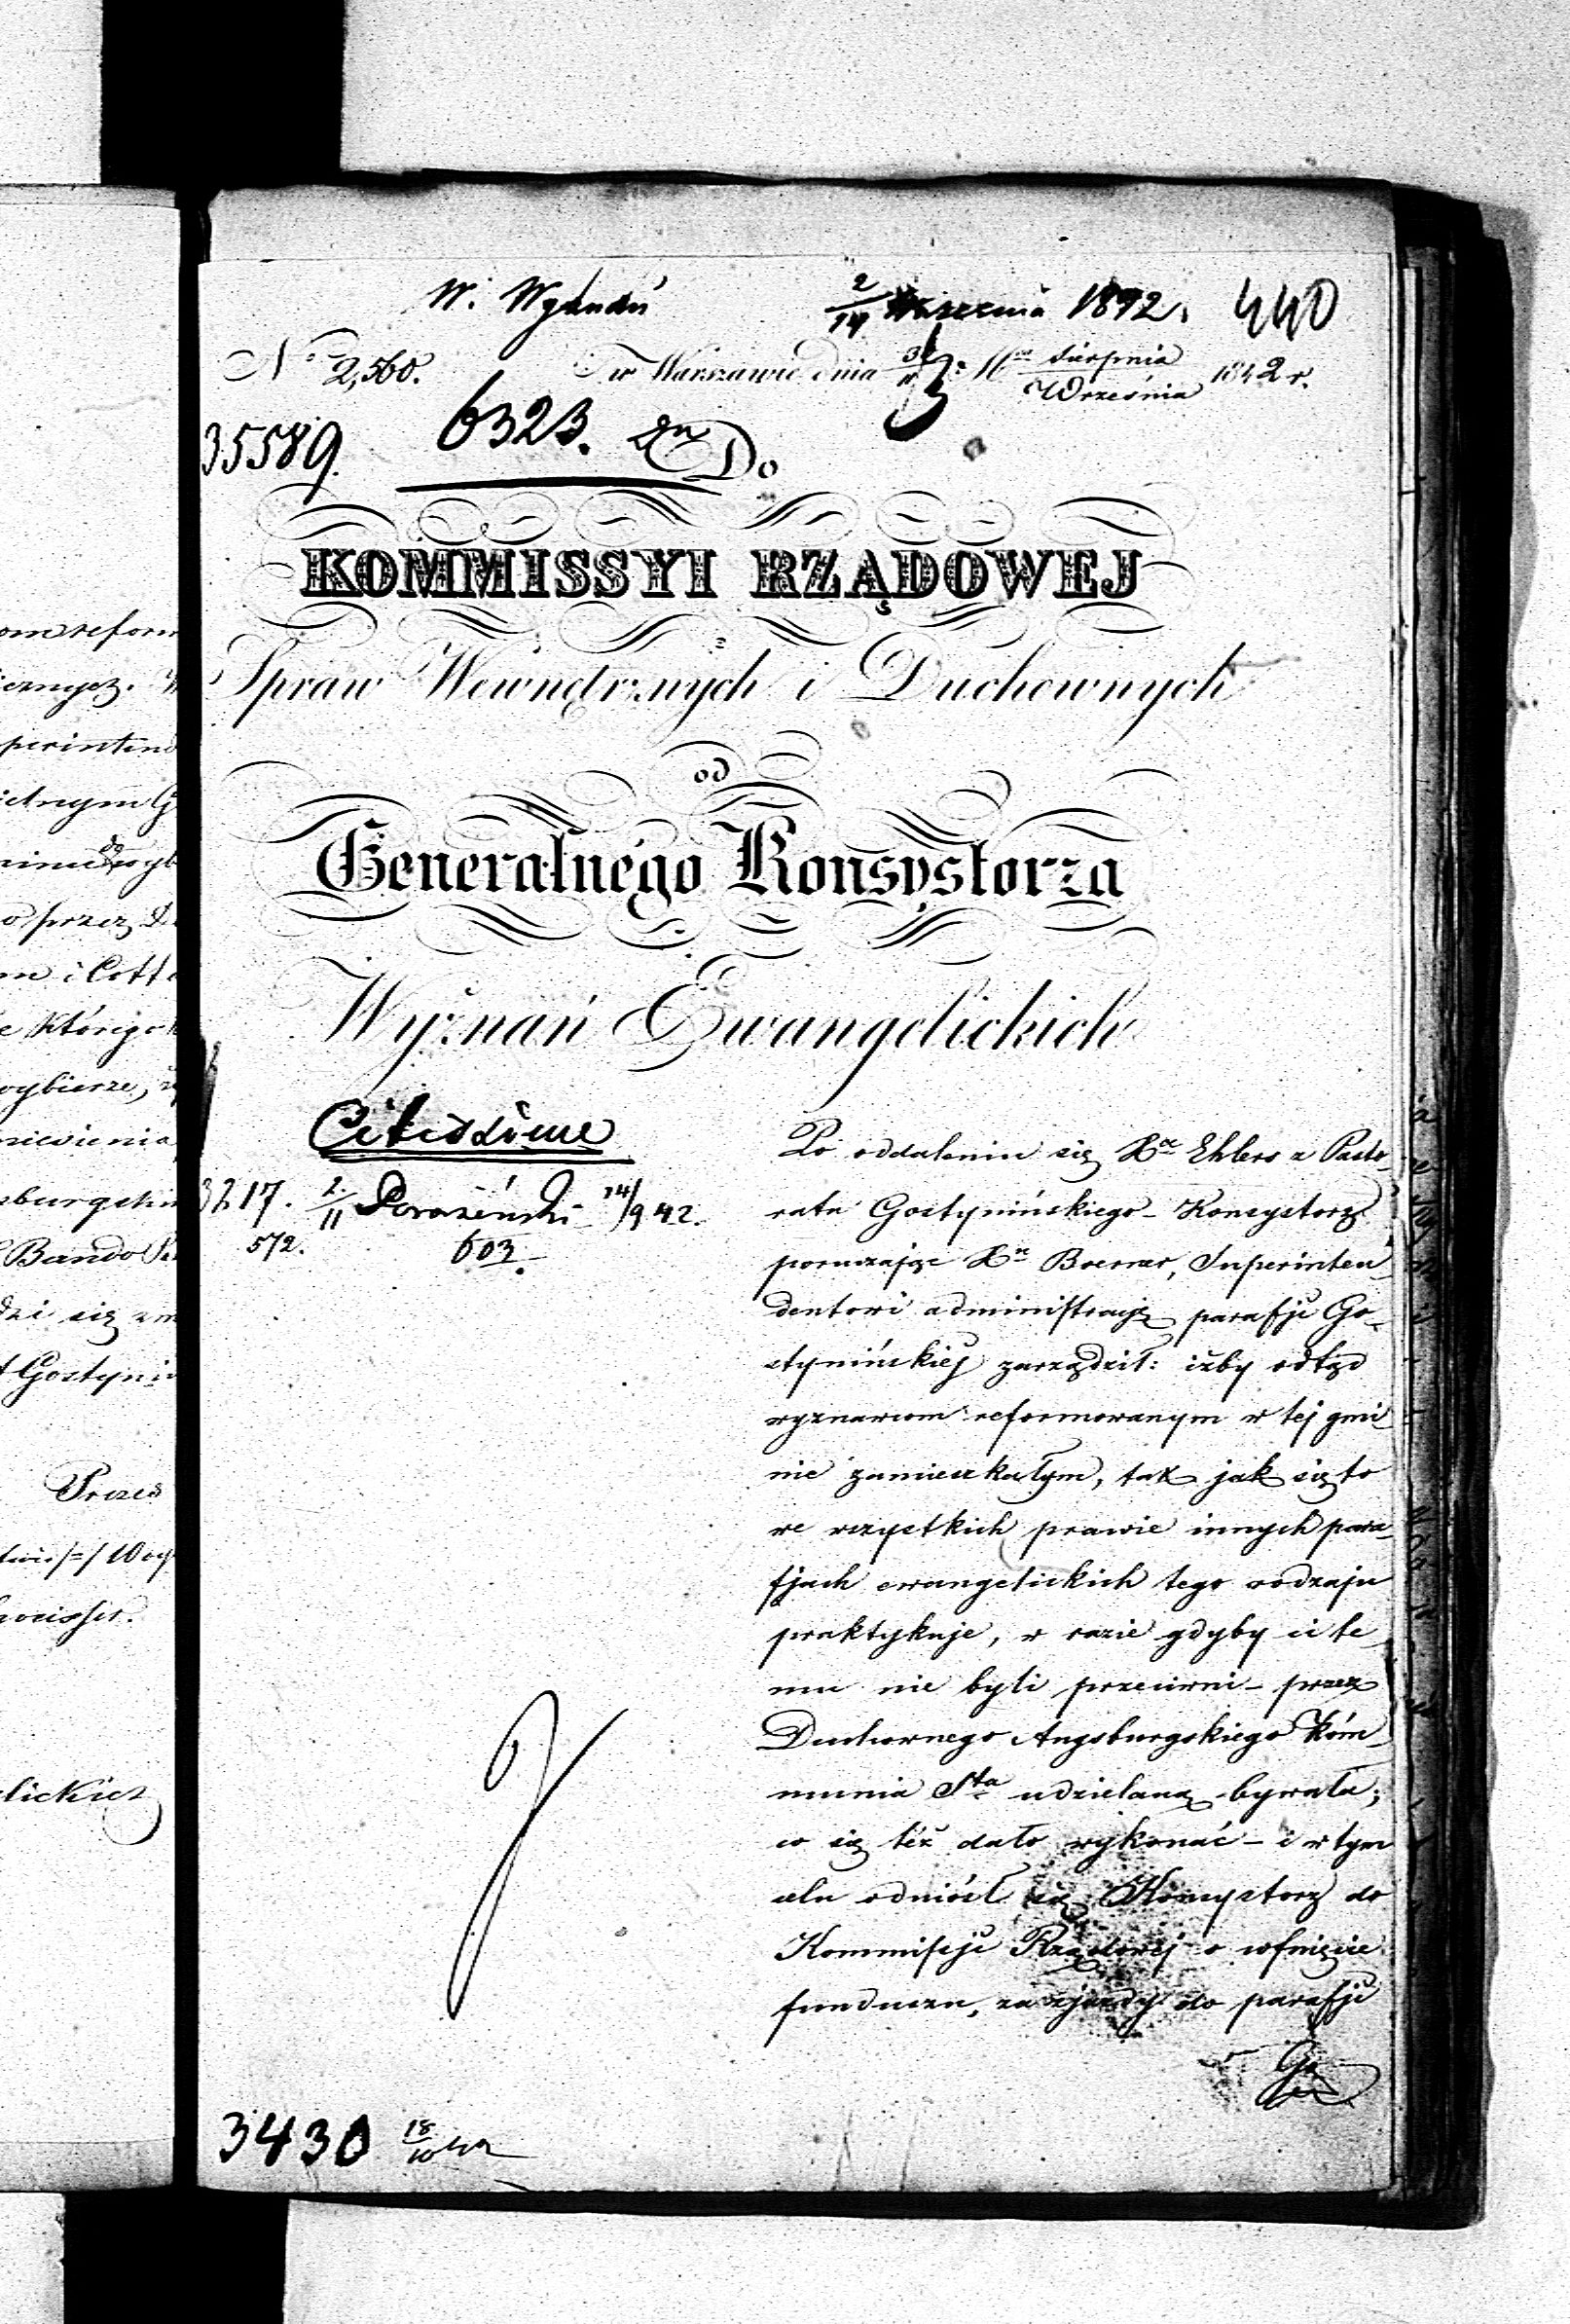 W. Wyznań 2/14 Września 1842. 440
No 2,560. w Warszawie dnia Mca Sierpnia/Września 1842 r.
35589. 6323. Do
KOMMISSYI RZĄDOWEJ
Spraw Wewnętrznych i Duchownych
od
Generalnego Konsystorza
Wyznań Ewangelickich
Citissime
3217. 2/11 14/9 42.
572. 603.
Po oddaleniu się Xa Ehlers z Pasto-
ratu Gostynińskiego - Konsystorz
poruczając Xu Boerner, Superinten-
dentowi administracją parafji Go-
stynińskiej zarządził: iżby odtąd
wyznawcom reformowanym w tej gmi-
nie zamieszkałym, tak jak się to
we wszystkich prawie innych para-
fjach ewangelickich tego rodzaju
praktykuje, w razie gdyby ci te-
mu nie byli przeciwni - przez
Duchownego Augsburgskiego Kom-
munia Sta udzielaną bywała;
co się téż dało wykonać - i w tym
celu odniósł się Konsystorz do
Kommissji Rządowej o cofnięcie
funduszu, za zjazdy do parafji
Go
3430 18/10
omreform
perintend
o przez
Bando
dzi się
Gostyni
Prezes
lickiej